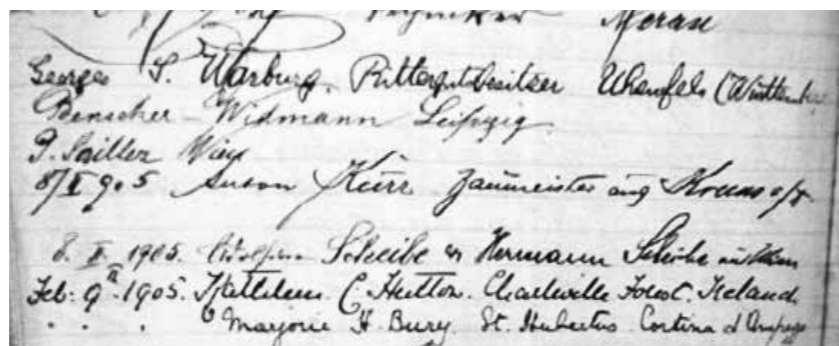 Meran
Georges S. Warburg. Rittergutsbesitzer Uhenfels (Württemberg
Benscher-Widmann Leipzig.
Wien
8/II 905 Anton Kürr aus Krems a/D.
8. II. 1905. Scheibe u Hermann Scheibe aus Wien
Feb: 9th 1905. Kathleen C. Hutton. Charleville Forest. Ireland.
" " " Marjorie H. Bury. St. Hubertus Cortina d'Ampezzo